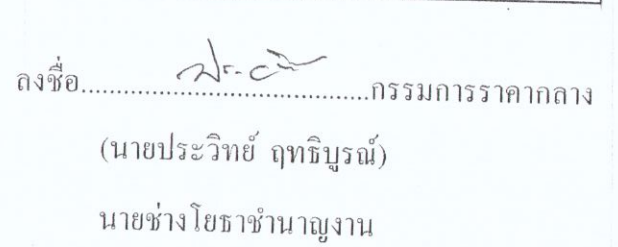 ลงชื่อ........................................กรรมการราคากลาง
(นายประวิทย์ ฤทธิบูรณ์)
นายช่างโยธาชำนาญงาน